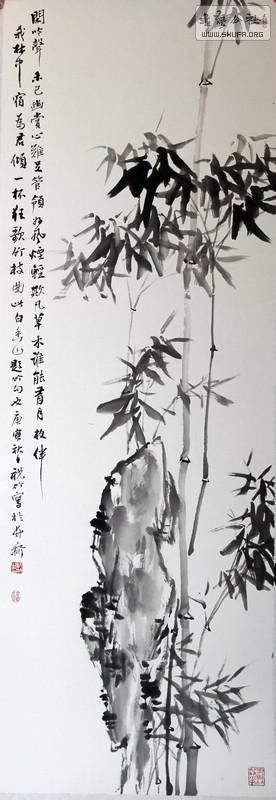 WWW.SHUFA.ORG
閑吟聲未已幽賞心難足管領好風煙輕欺凡草木誰能有月夜伴
我林中宿為君傾一杯狂歌竹枝曲此白香山題竹句也庚寅秋寫於齋